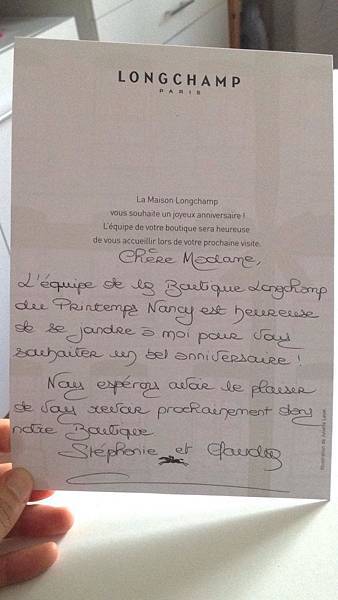 LONGCHAMP
PARIS
La Maison Longchamp
vous souhaite un joyeux anniversaire !
L'équipe de votre boutique sera heureuse
de vous accueillir lors de votre prochaine visite.
Chère Madame,
L'équipe de la Boutique Longchamp
du Printemps Nancy est heureuse
de se jandre à moi pour vous
souhaiter un bel anniversaire !
Nous espérons avoir le plaisir
de vous revoir prochainement dans
notre Boutique
Stéphanie et Claudia
Illustration de